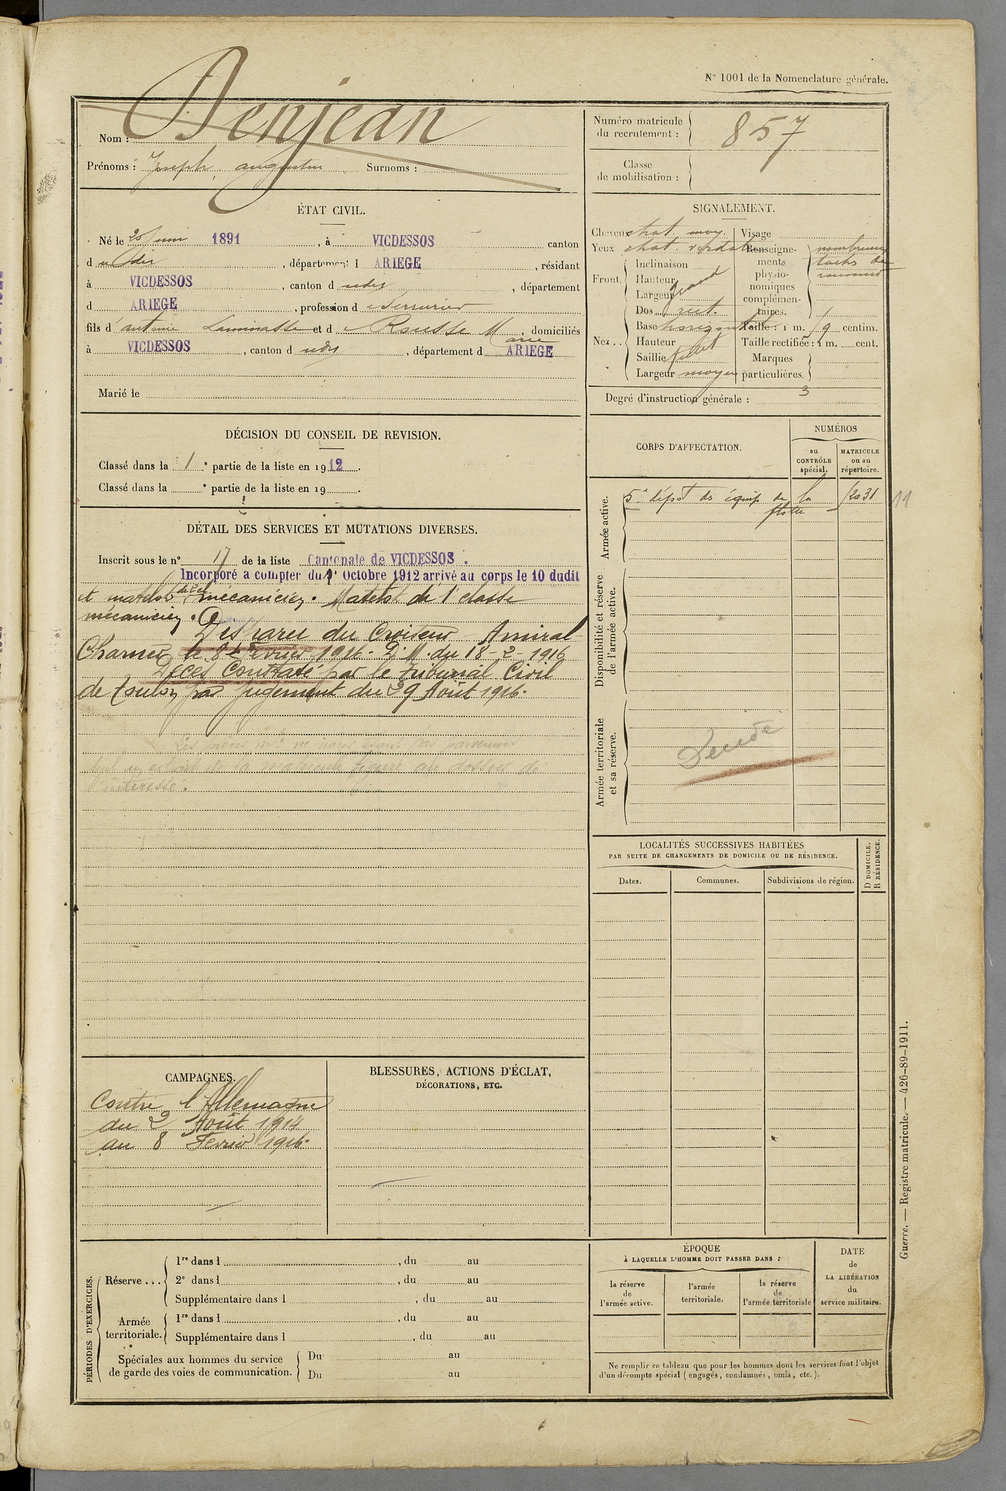 N° 1001 de la Nomenclature générale.
Nom : Denjean
Prénoms : Joseph, augustin Surnoms :
Numéro matricule du recrutement : 857
Classe de mobilisation :
ÉTAT CIVIL.
Né le 1891, à VICDESSOS canton
d udes, département d ARIEGE, résidant
à VICDESSOS, canton d udes, département
d ARIEGE, profession d serrurier
fils d'antoine et d Rousse Marie, domiciliés
à VICDESSOS, canton d udes, département d ARIEGE
Marié le
SIGNALEMENT.
Cheveux chat. moy.
Yeux chat.
Front Inclinaison
Hauteur grand
Largeur
Nez Dos rect.
Base horizontale
Hauteur
Saillie petit
Largeur moyen
Visage
Renseignements physionomiques complémentaires. nombreuses taches de rousseur
Taille : 1 m. centim.
Taille rectifiée : 1 m. cent.
Marques particulières
Degré d'instruction générale : 3
DÉCISION DU CONSEIL DE REVISION.
Classé dans la 1e partie de la liste en 1912.
Classé dans la e partie de la liste en 19 .
DÉTAIL DES SERVICES ET MUTATIONS DIVERSES.
Inscrit sous le n° 17 de la liste Cantonale de VICDESSOS.
Incorporé à compter du 1er Octobre 1912 arrivé au corps le 10 dudit
et matelot de 2e cl mécanicien. Matelot de 1e classe
mécanicien.
Disparu du Croiseur Amiral
Charner le 8 Février 1916. D.M. du 18-2-1916
Décès Constaté par le tribunal Civil
de Toulon par jugement du 29 Août 1916.
de la matricule figure au dossier de
l'intéressé.
CORPS D'AFFECTATION.
NUMÉROS
au CONTRÔLE spécial.
MATRICULE ou au répertoire.
Armée active.
5e dépôt des équip de la flotte
11
Disponibilité et réserve de l'armée active.
Armée territoriale et sa réserve.
LOCALITÉS SUCCESSIVES HABITÉES
PAR SUITE DE CHANGEMENTS DE DOMICILE OU DE RÉSIDENCE.
Dates.
Communes.
Subdivisions de région.
D DOMICILE.
R RÉSIDENCE.
CAMPAGNES.
Contre l'Allemagne
du 2 Août 1914
au 8 Fevrier 1916.
BLESSURES, ACTIONS D'ÉCLAT,
DÉCORATIONS, ETC.
PÉRIODES D'EXERCICES.
Réserve ...
1re dans l , du au
2e dans l , du au
Supplémentaire dans l , du au
Armée territoriale.
1re dans l , du au
Supplémentaire dans l , du au
Spéciales aux hommes du service de garde des voies de communication.
Du au
Du au
ÉPOQUE
À LAQUELLE L'HOMME DOIT PASSER DANS :
la réserve de l'armée active.
l'armée territoriale.
la réserve de l'armée territoriale
DATE de LA LIBÉRATION du service militaire.
Ne remplir ce tableau que pour les hommes dont les services font l'objet
d'un décompte spécial (engagés, condamnés, omis, etc.).
Guerre. — Registre matricule. — 426-89-1911.